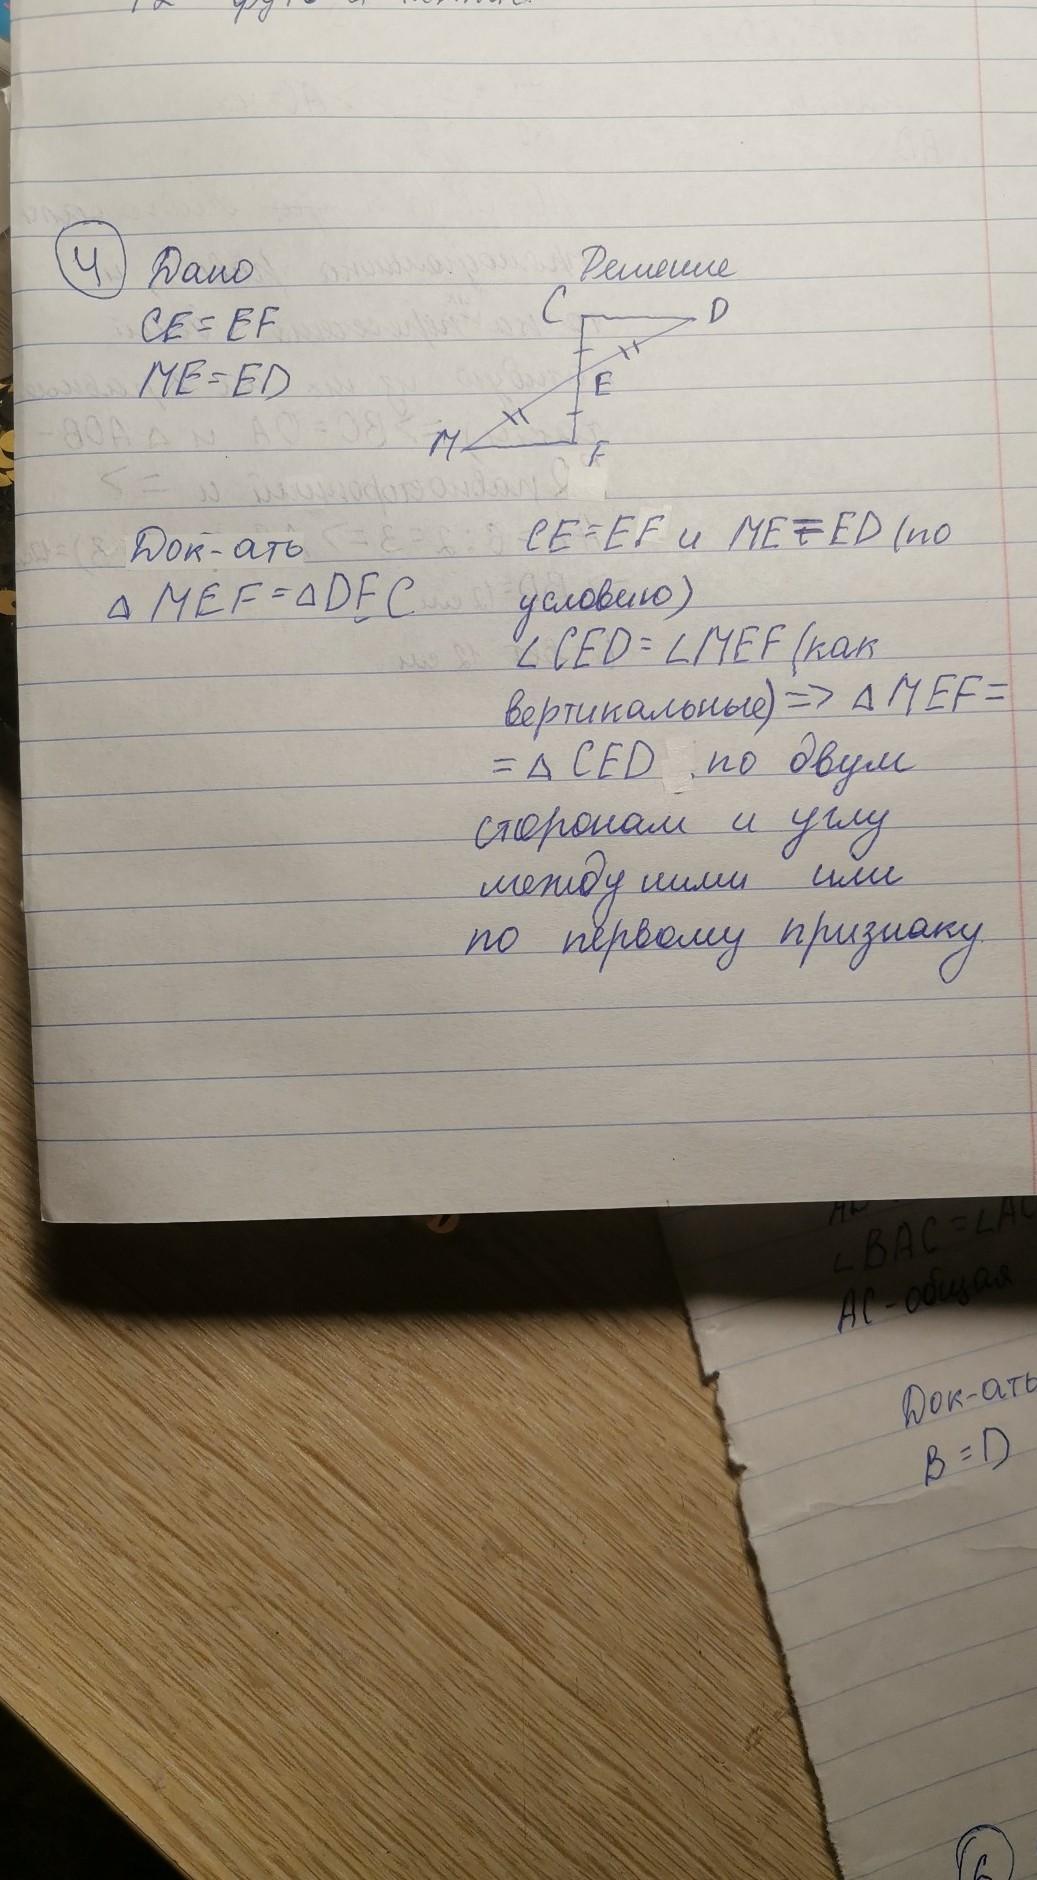 4 Дано Решение
CE = EF
ME = ED
C D
E
M F
Док-ать
△ MEF = △DEC
CE = EF и ME = ED (по
условию)
∠CED = ∠MEF (как
вертикальные) => △ MEF =
= △ CED по двум
сторонам и углу
между ними или
по первому признаку
∠BAC = ∠AC
AC - общая
Док-ать
B = D
6